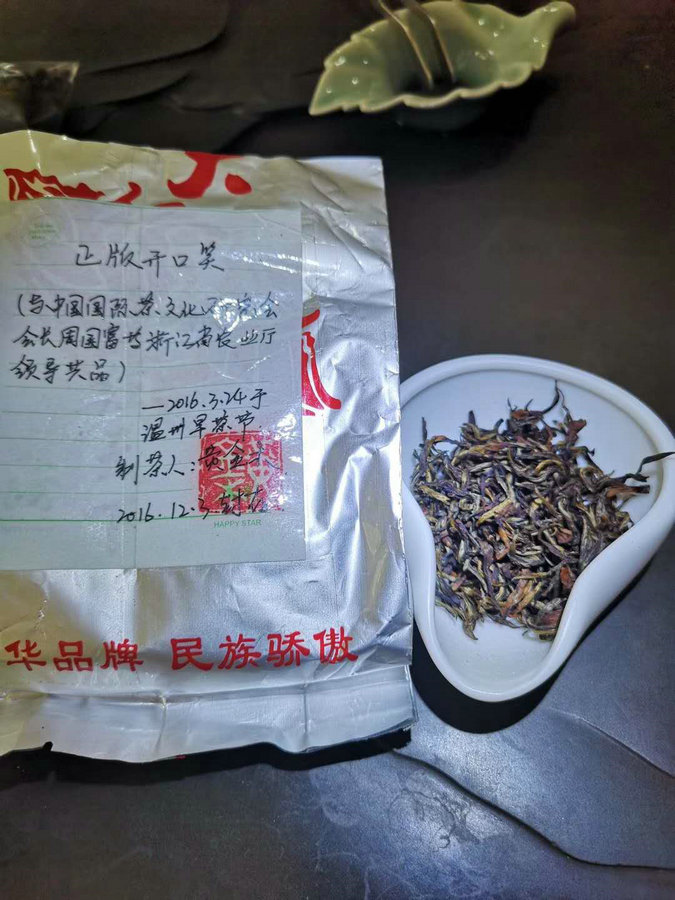 正版开口笑
(与中国国际茶文化研究会
会长周国富与浙江省农业厅
领导共品)
—2016.3.24于
温州早茶节
制茶人:黄金
2016.12.3封存
HAPPY STAR
华品牌 民族骄傲